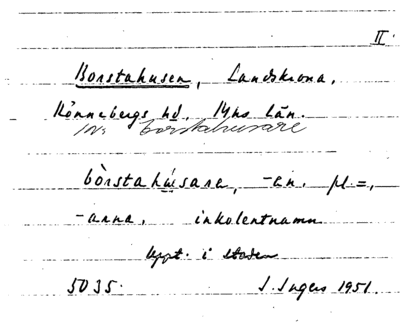 II.
Borstahusen, Landskrona,
Rönnebergs hd. Mhs län.
inv. borstahusare
bòrstahúsare, -en, pl. =,
-arna, inkolentnamn
Uppt. i staden
5035. I. Ingers 1951.